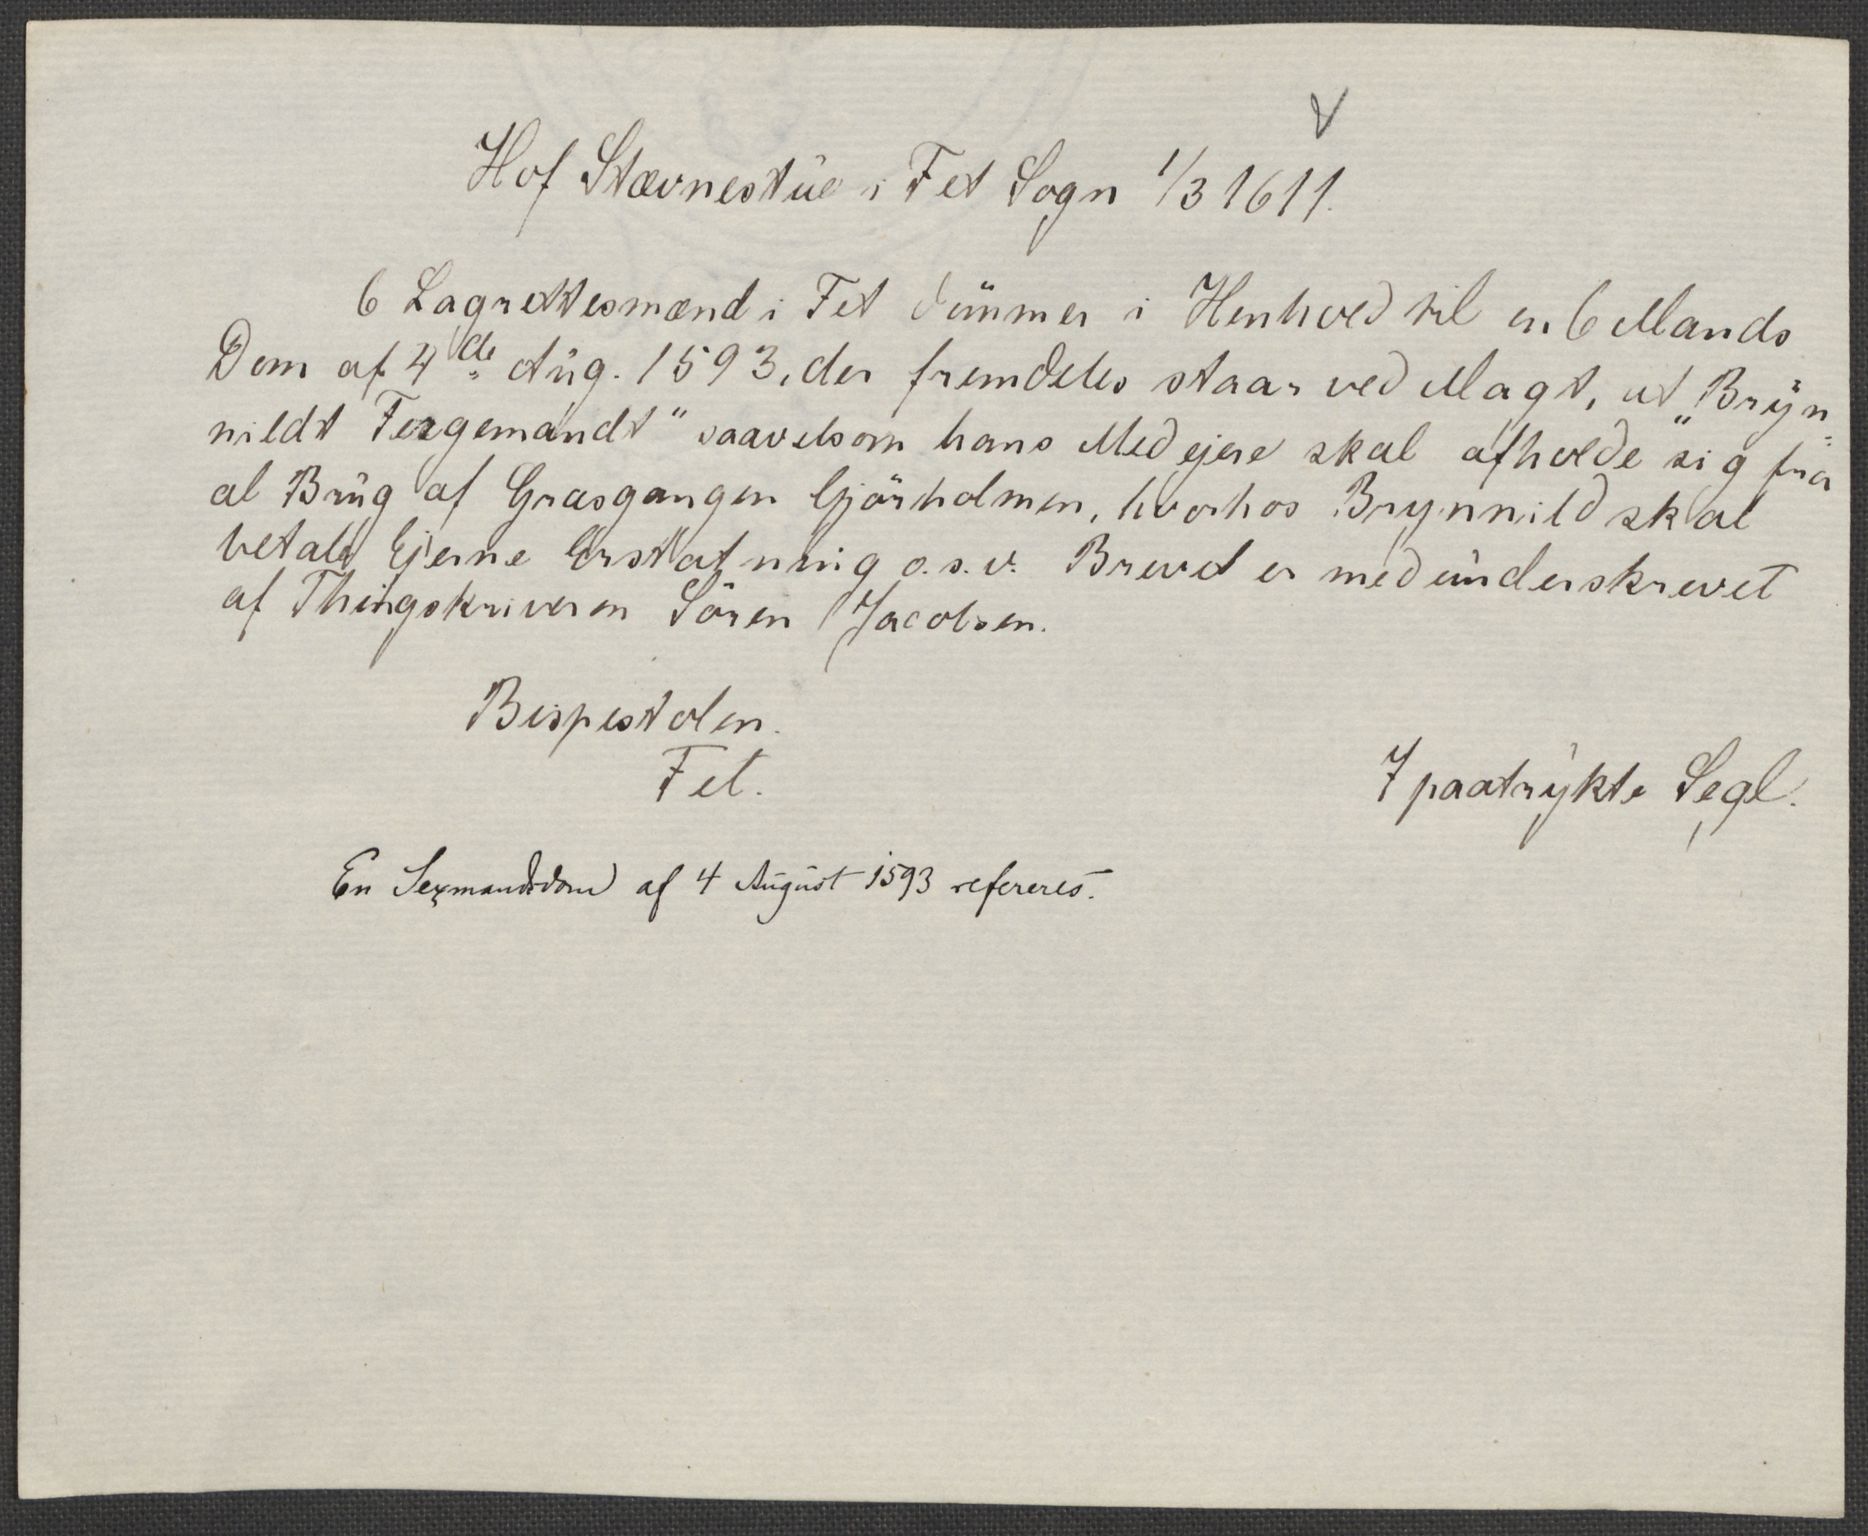 Hof Stævnestüe i Fet Sogn 1/3 1611.
6 Lagrettesmænd i Fet dömmer i Henhold til en 6 Mands
Dom af 4de Aüg. 1593, der fremdeles staar ved Magt, at „Brÿn-
nildt Fergemandt" saavelsom hans Medejere skal afholde sig fra
al Brüg af Græsgangen Gjörholmen, hvorhos Brynnild skal
betale Ejerne Erstatning o.s.v. Brevet er medünderskrevet
af Thingskriveren Sören Jacobsen.
Bispestolen.
Fet.
7 paatrÿkte Segl.
En Sexmandsdom af 4 Aügüst 1593 refereres.